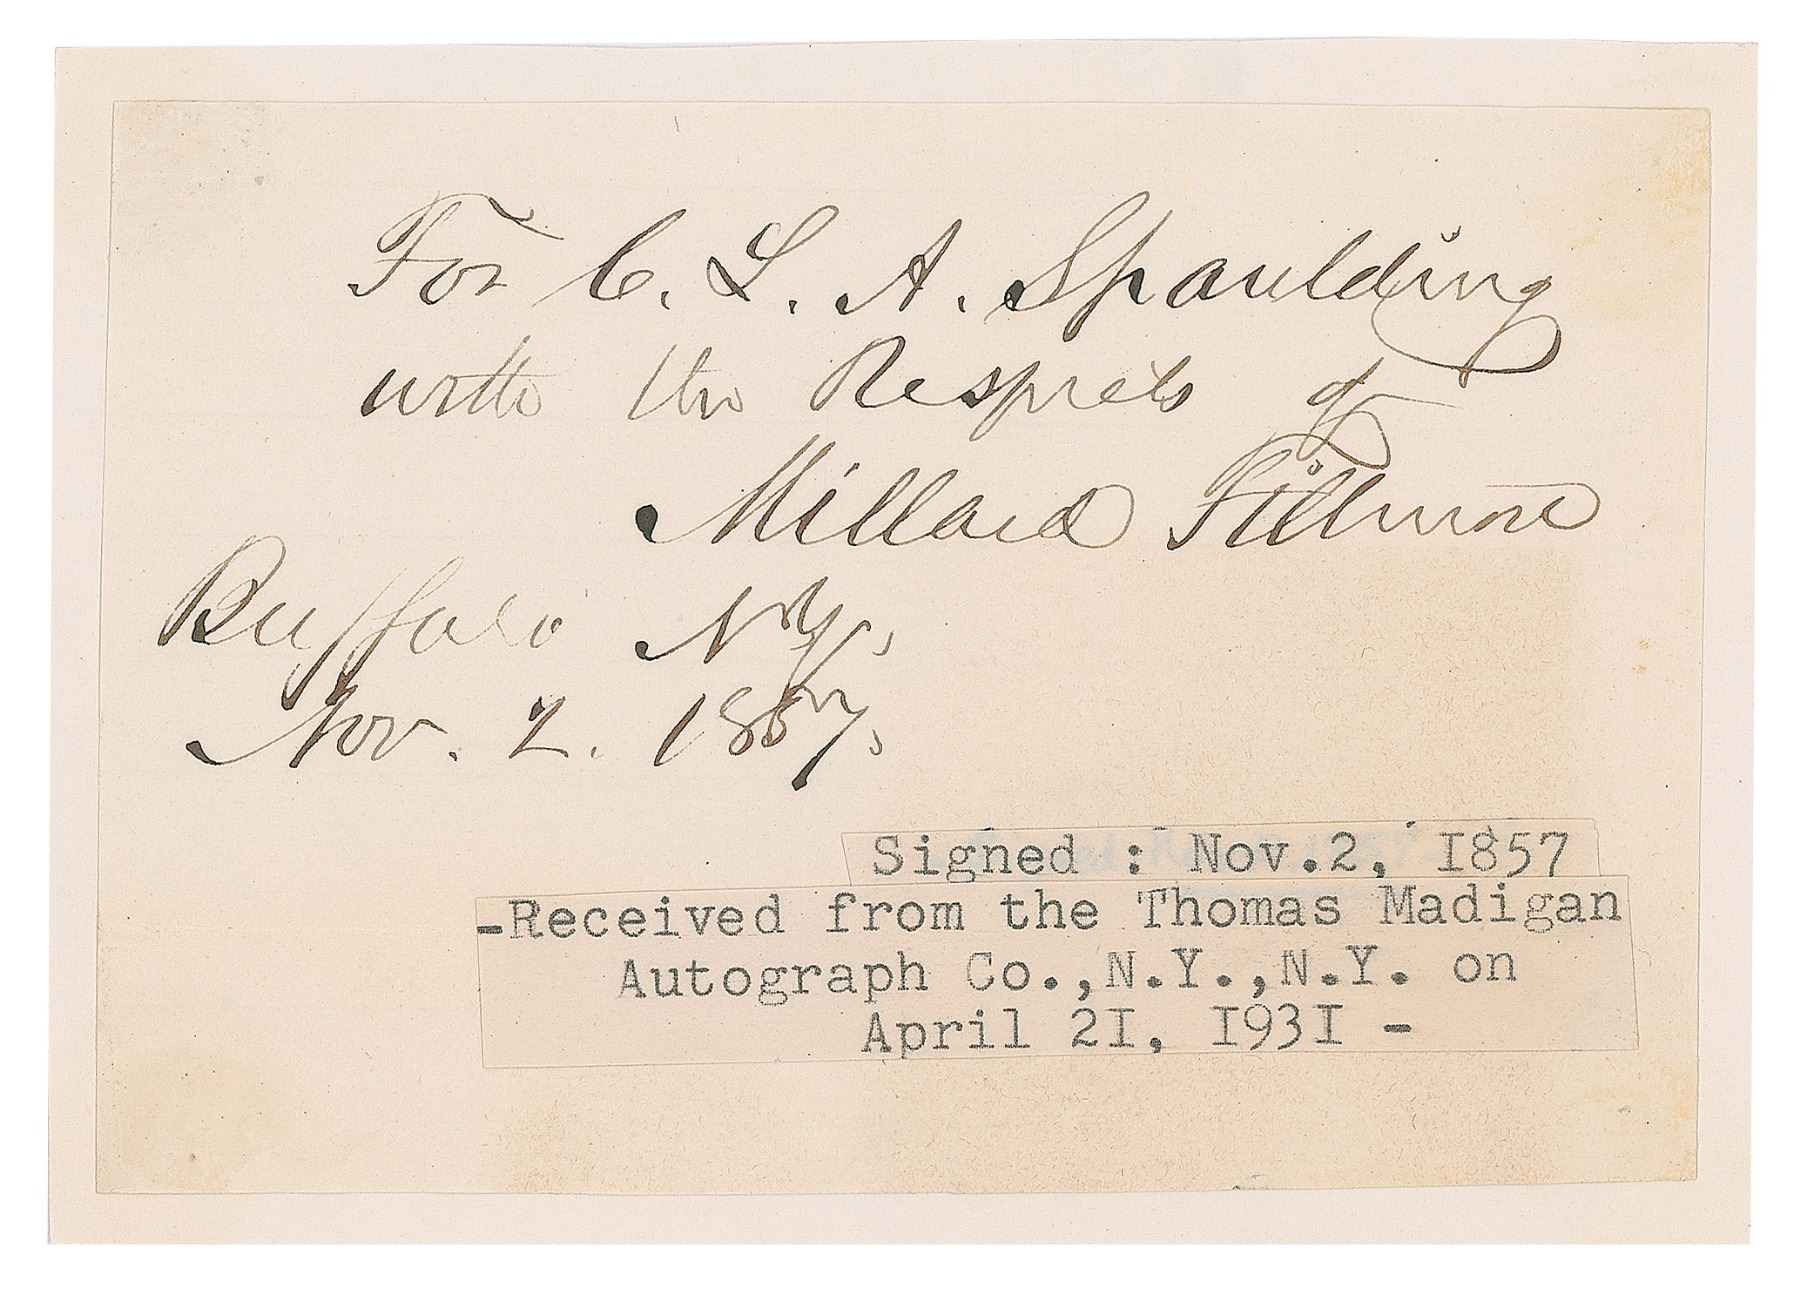 For C. L. A. Spaulding
with the Respects of
Millard Fillmore
Buffalo N.Y.
Nov. 2. 1857.
Signed : Nov.2, I857
-Received from the Thomas Madigan
Autograph Co.,N.Y.,N.Y. on
April 2I, I93I -